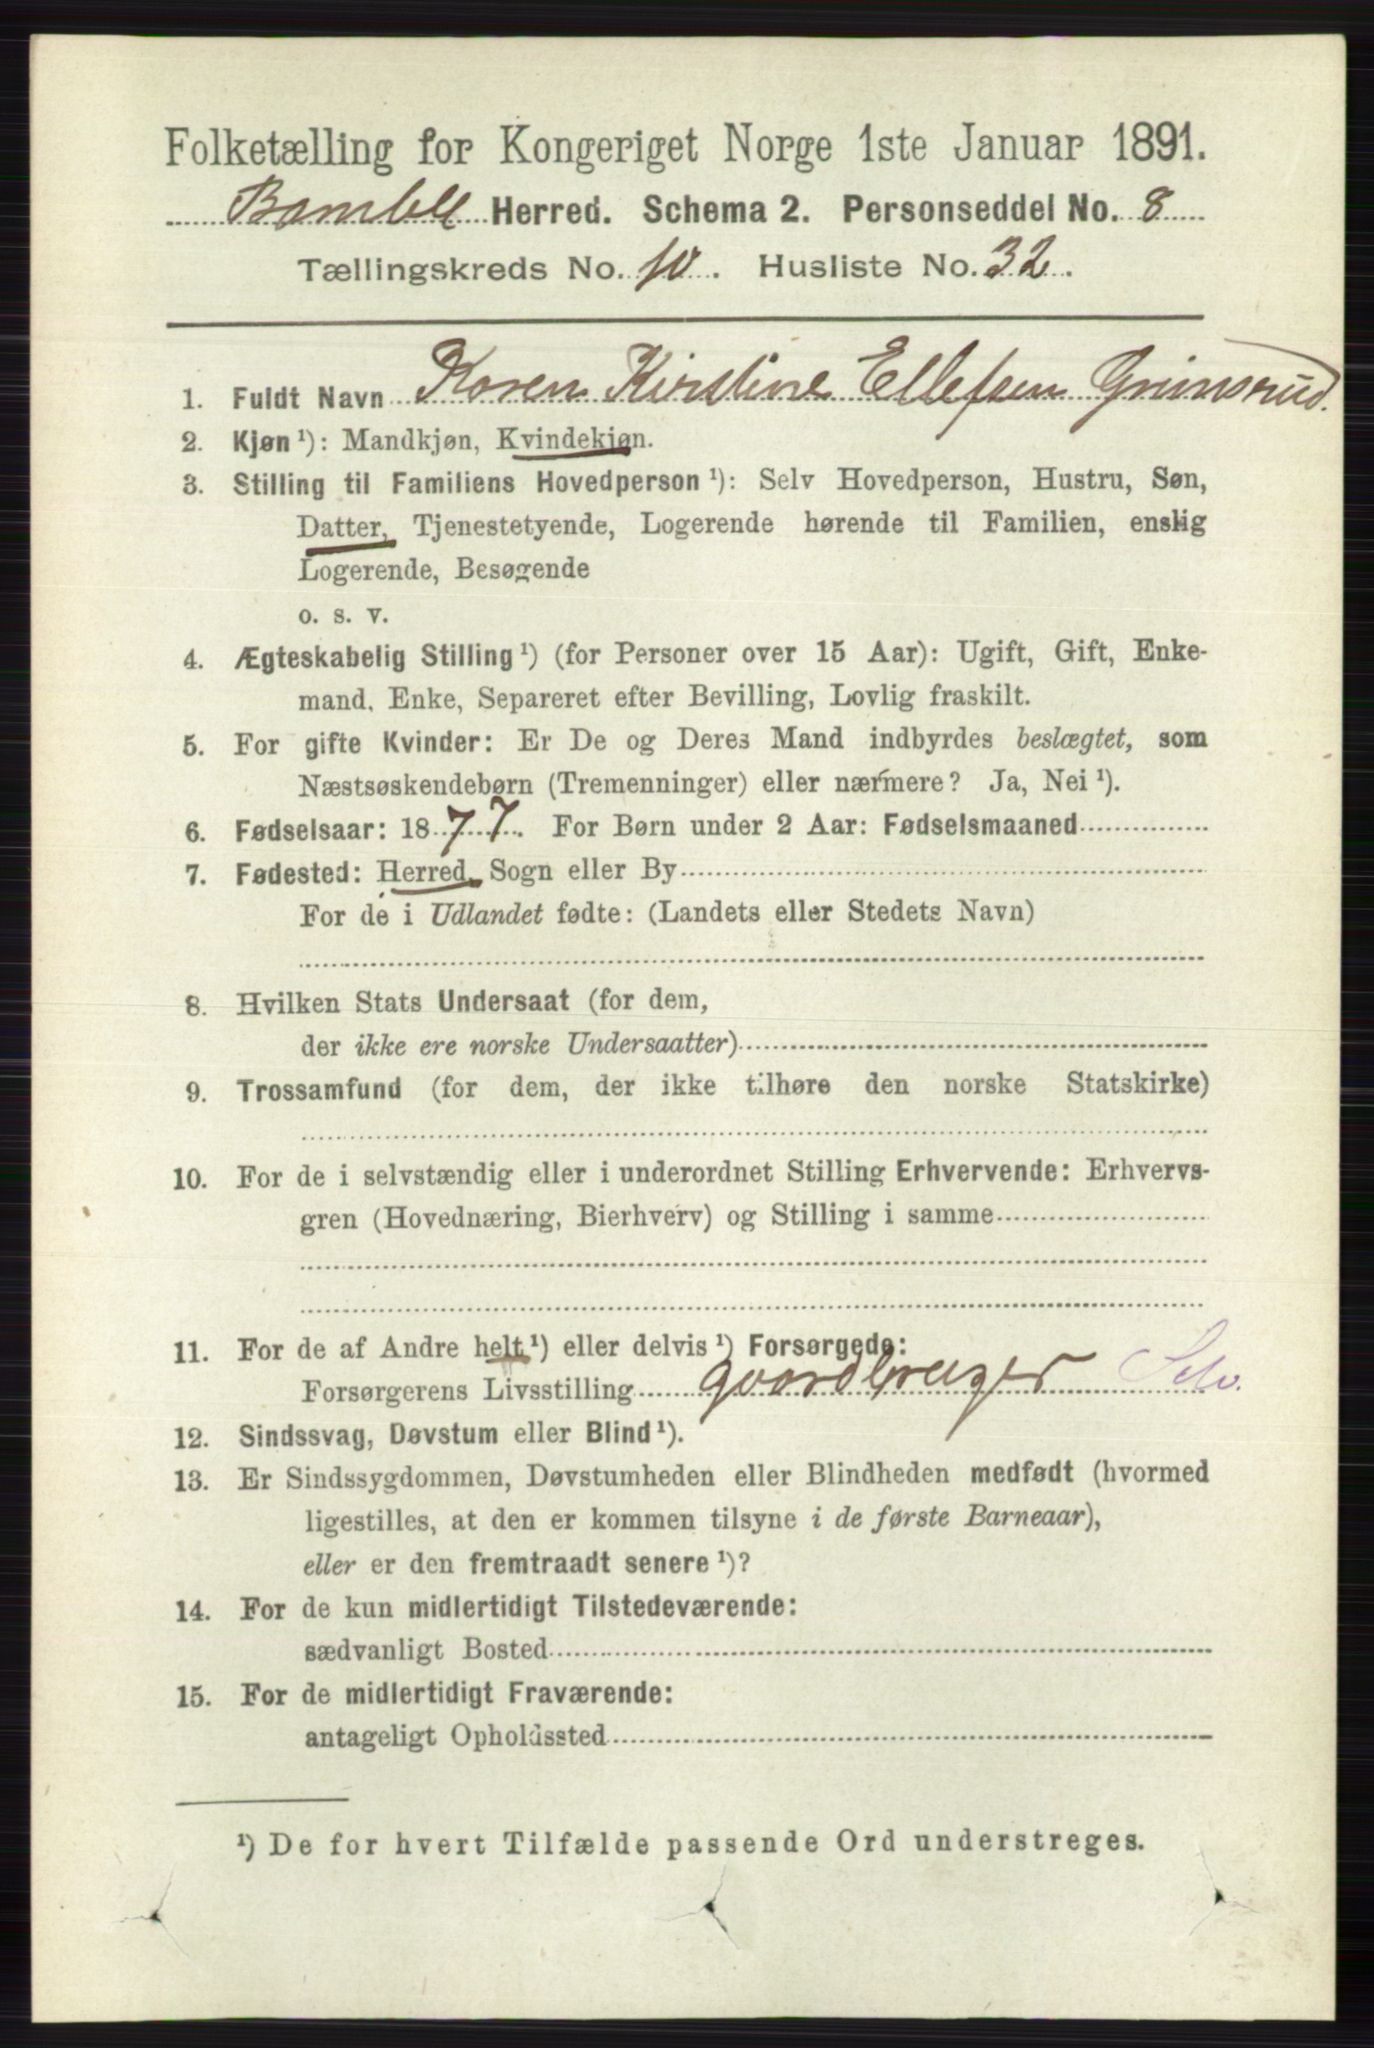 Folketælling for Kongeriget Norge 1ste Januar 1891.
Bamble Herred. Schema 2. Personseddel No. 8
Tællingskreds No. 10. Husliste No. 32.
1. Fuldt Navn Karen Kirstine Ellefsen Grimsrud.
2. Kjøn ¹): Mandkjøn, Kvindekjøn.
3. Stilling til Familiens Hovedperson ¹): Selv Hovedperson, Hustru, Søn,
Datter, Tjenestetyende, Logerende hørende til Familien, enslig
Logerende, Besøgende
o. s. v.
4. Ægteskabelig Stilling ¹) (for Personer over 15 Aar): Ugift, Gift, Enke-
mand, Enke, Separeret efter Bevilling, Lovlig fraskilt.
5. For gifte Kvinder: Er De og Deres Mand indbyrdes beslægtet, som
Næstsøskendebørn (Tremenninger) eller nærmere? Ja, Nei ¹).
6. Fødselsaar: 1877. For Børn under 2 Aar: Fødselsmaaned
7. Fødested: Herred, Sogn eller By
For de i Udlandet fødte: (Landets eller Stedets Navn)
8. Hvilken Stats Undersaat (for dem,
der ikke ere norske Undersaatter)
9. Trossamfund (for dem, der ikke tilhøre den norske Statskirke)
10. For de i selvstændig eller i underordnet Stilling Erhvervende: Erhvervs-
gren (Hovednæring, Bierhverv) og Stilling i samme
11. For de af Andre helt ¹) eller delvis ¹) Forsørgede:
Forsørgerens Livsstilling gaardbruger Selv.
12. Sindssvag, Døvstum eller Blind ¹).
13. Er Sindssygdommen, Døvstumheden eller Blindheden medfødt (hvormed
ligestilles, at den er kommen tilsyne i de første Barneaar),
eller er den fremtraadt senere ¹)?
14. For de kun midlertidigt Tilstedeværende:
sædvanligt Bosted
15. For de midlertidigt Fraværende:
antageligt Opholdssted
¹) De for hvert Tilfælde passende Ord understreges.